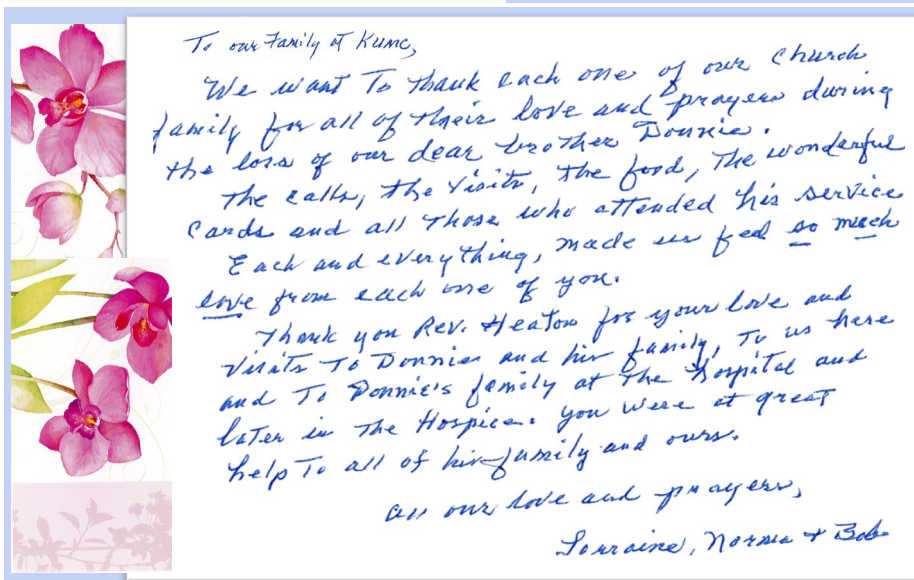 To our Family at KUMC,
We want To thank each one of our church
family for all of their love and prayers during
the loss of our dear brother Donnie.
The calls, the visits, the food, The wonderful
cards and all those who attended his service
Each and everything, made us feel so much
love from each one of you.
Thank you Rev. Heaton for your love and
visits To Donnie and his family, To us here
and To Donnie's family at The hospital and
later in The Hospice. you were at great
help To all of his family and ours.
All our love and prayers,
Lorraine, Norma + Bob